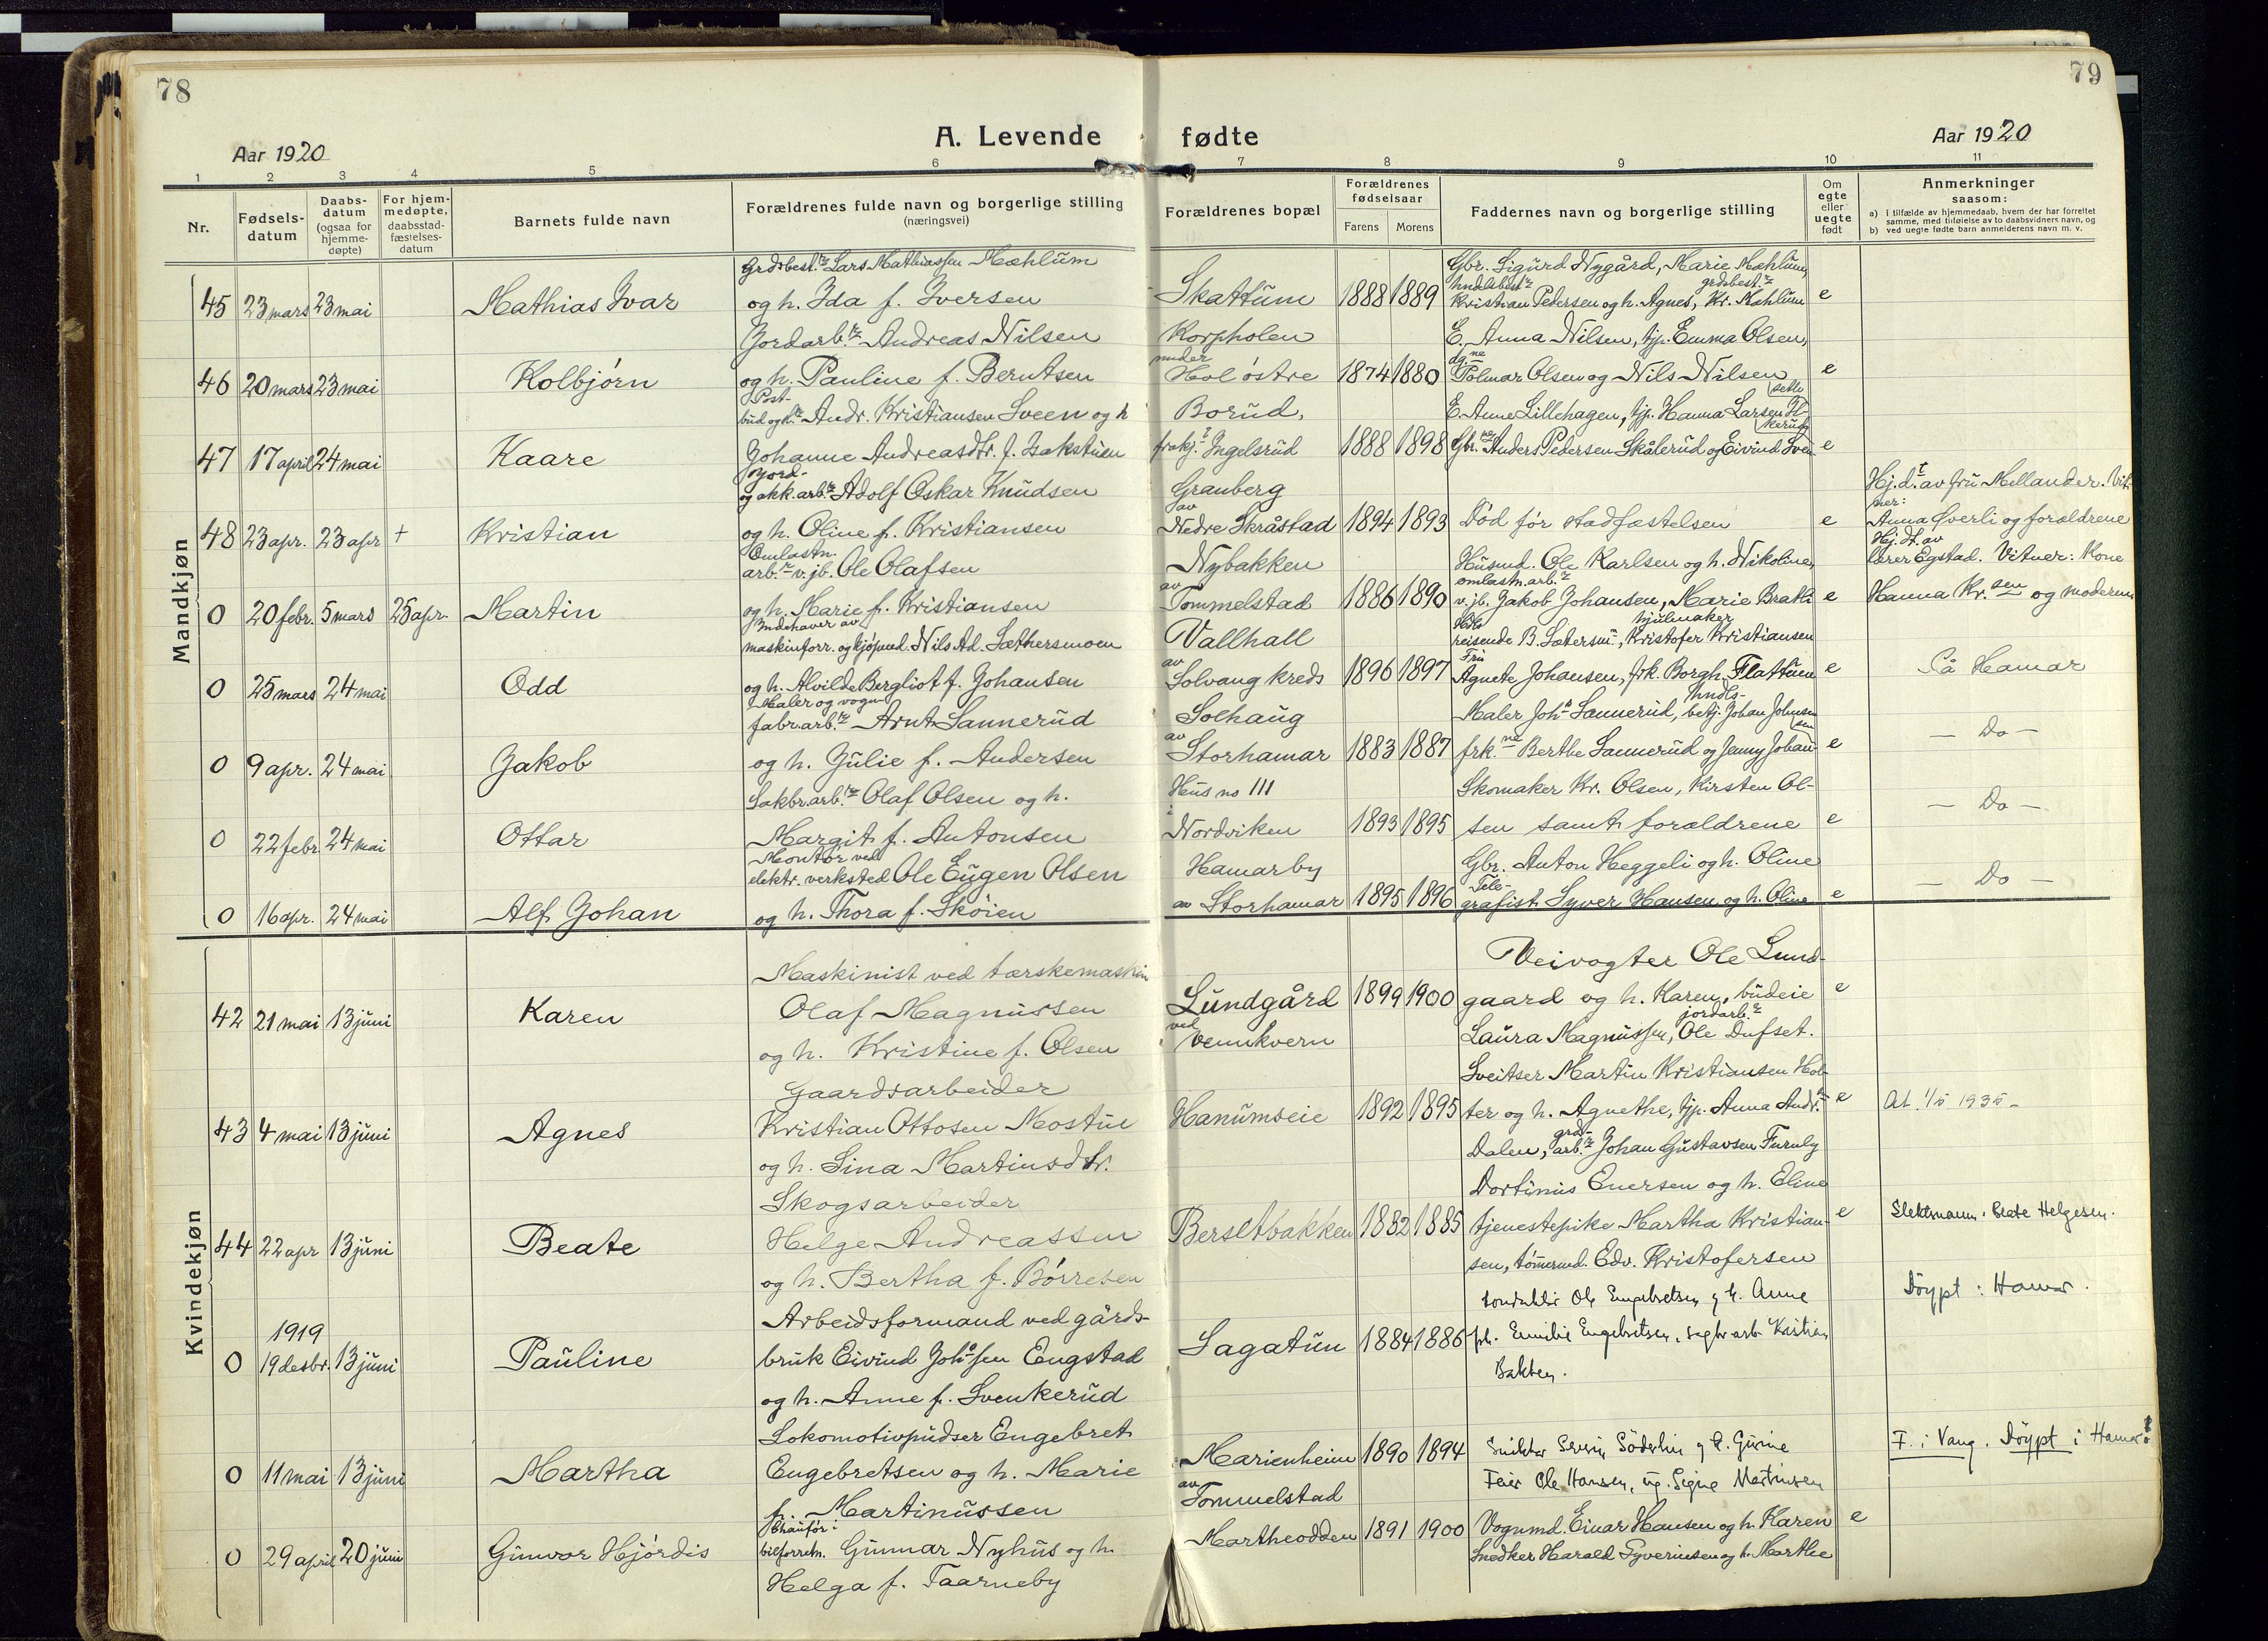 78
79
A. Levende fødte
Aar 1920
Aar 1920
1 2 3 4 5 6 7 8 9 10 11
Nr.
Fødsels-datum
Daabs-datum (ogsaa for hjemme-døpte)
For hjem-medøpte, daabsstad-fæstelses-datum
Barnets fulde navn
Forældrenes fulde navn og borgerlige stilling (næringsvei)
Forældrenes bopæl
Forældrenes fødselsaar
Farens Morens
Faddernes navn og borgerlige stilling
Om egte eller uegte født
Anmerkninger saasom:
a) i tilfælde av hjemmedaab, hvem der har forrettet samme, med tilføielse av to daabsvidners navn, og
b) ved uegte fødte barn anmelderens navn m. v.
Mandkjøn
Grdbest. Lars Mathiassen Mæhlum
Gbr. Sigurd Nygård, Marie Mæhlum,
45 23 mars 23 mai Mathias Ivar og h. Ida f. Iversen Skattum 1888 1889 Kristian Pedersen og h. Agnes, Kr. Mæhlum e
Jordarb. Andreas Nilsen Korpholen E. Anna Nilsen, tjp. Emma Olsen,
under
46 20 mars 23 mai Kolbjørn og h. Pauline f. Berntsen Hol østre 1874 1880 Polmar Olsen og Nils Nilsen e
Post-
bud og Andr. Kristiansen Sveen og h Borud, E. Anne Lillehagen, tjp. Hanna Larsen
47 17 april 24 mai Kaare Johanne Andreasdtr. f. Isakstuen frakj. Ingelsrud 1888 1898 Gbr. Anders Pedersen Skålerud og Eivind Sveen e
Jord-
og akk.arb. Adolf Oskar Knudsen Granberg Hj.d. av fru Mellander. Vit-
av
ner:
48 23 apr. 23 apr + Kristian og h. Oline f. Kristiansen Nedre Skråstad 1894 1893 Død før stadfæstelsen e Anna Øverli og forældrene
Omlastn.
Hj. dt. av
arb. v. jb. Ole Olafsen Nybakken Husmd. Ole Karlsen og h. Nikoline, lærer Egstad. Vitner: Kone
av omlastn.arb.
0 20 febr. 5 mars 25 apr. Martin og h. Marie f. Kristiansen Tommelstad 1886 1890 v. jb. Jakob Johansen, Marie Bratli e Hanna Kr.sen og moderen
Indehaver av hjulmaker
maskinforr. og kjøpmd. Nils Ad. Sæthersmoen Vallhall reisende B. Sætersm., Kristofer Kristiansen
av Fru
0 25 mars 24 mai Odd og h. Alvilde Bergliot f. Johansen Solvang kreds 1896 1897 Agnete Johansen, frk. Borgh. Flattuen e På Hamar
Maler og vogn-
fabr.arb. Arnt Sannerud Solhaug Maler Joh. Sannerud, betj. Johan Johnsen
av
0 9 apr. 24 mai Jakob og h. Julie f. Andersen Storhamar 1883 1887 frk. Berthe Sannerud og Jenny Johan- e — Do —
Sakbr.arb. Olaf Olsen og h. Hus no 111 Skomaker Kr. Olsen, Kirsten Ol-
i
0 22 febr. 24 mai Ottar Margit f. Antonsen Nordviken 1893 1895 sen samt forældrene e — Do —
Montør ved
elektr. verksted Ole Eugen Olsen Hamarby Gbr. Anton Heggeli og h. Oline
Tele-
0 16 apr. 24 mai Alf Johan og h. Thora f. Skøien av Storhamar 1895 1896 grafist Syver Hansen og h. Oline e — Do —
Kvindekjøn
Maskinist ved tærskemaskin Veivogter Ole Lund-
42 21 mai 13 juni Karen Olaf Magnussen Lundgård 1899 1900 gaard og h. Karen, budeie e
ved jordarb.
og h. Kristine f. Olsen Vennkvern Laura Magnussen, Ole Dufset.
Gaardsarbeider Sveitser Martin Kristiansen Hol-
43 4 mai 13 juni Agnes Kristian Ottosen Mostue Hanumseie 1892 1895 ter og h. Agnethe, tjp. Anna Andr. e At. 1/5 1935 –
og h. Lina Martinsdtr. Dalen, arb. Johan Gustavsen Furuly
Skogsarbeider Dortinus Enersen og h. Eline
44 22 apr 13 juni Beate Helge Andreassen Bersetbakken 1882 1885 tjenestepike Martha Kristian- e Slektsnavn: Beate Helgesen.
og h. Bertha f. Børresen sen, tømermd. Edv. Kristofersen
Arbeidsformand ved gårds- konduktør Ole Engebretsen og h. Anne Döypt i Hamar.
1919
0 19 desbr. 13 juni Pauline bruk Eivind Johssen Engstad Sagatun 1884 1886 pk. Emilie Engebretsen, sagbr.arb. Kristian
og h. Anne f. Svenkerud Bakken.
Lokomotivpudser Engebret Snikker Severin Söderlin og h. Gurine F. i Vang. Döypt i Hamar
0 11 mai 13 juni Martha Engebretsen og h. Marie Marienheim 1890 1894 Feier Ole Hansen, ug. Signe Martinsen
av
f. Martinussen Tommelstad
Chaufør i
0 29 april 20 juni Gunvor Hjørdis bilforretn. Gunnar Nyhus og h. Martheodden 1891 1900 Vognmd. Einar Hansen og h. Karen e
Helga f. Taarneby Snedker Harald Syverinsen og h. Marthe